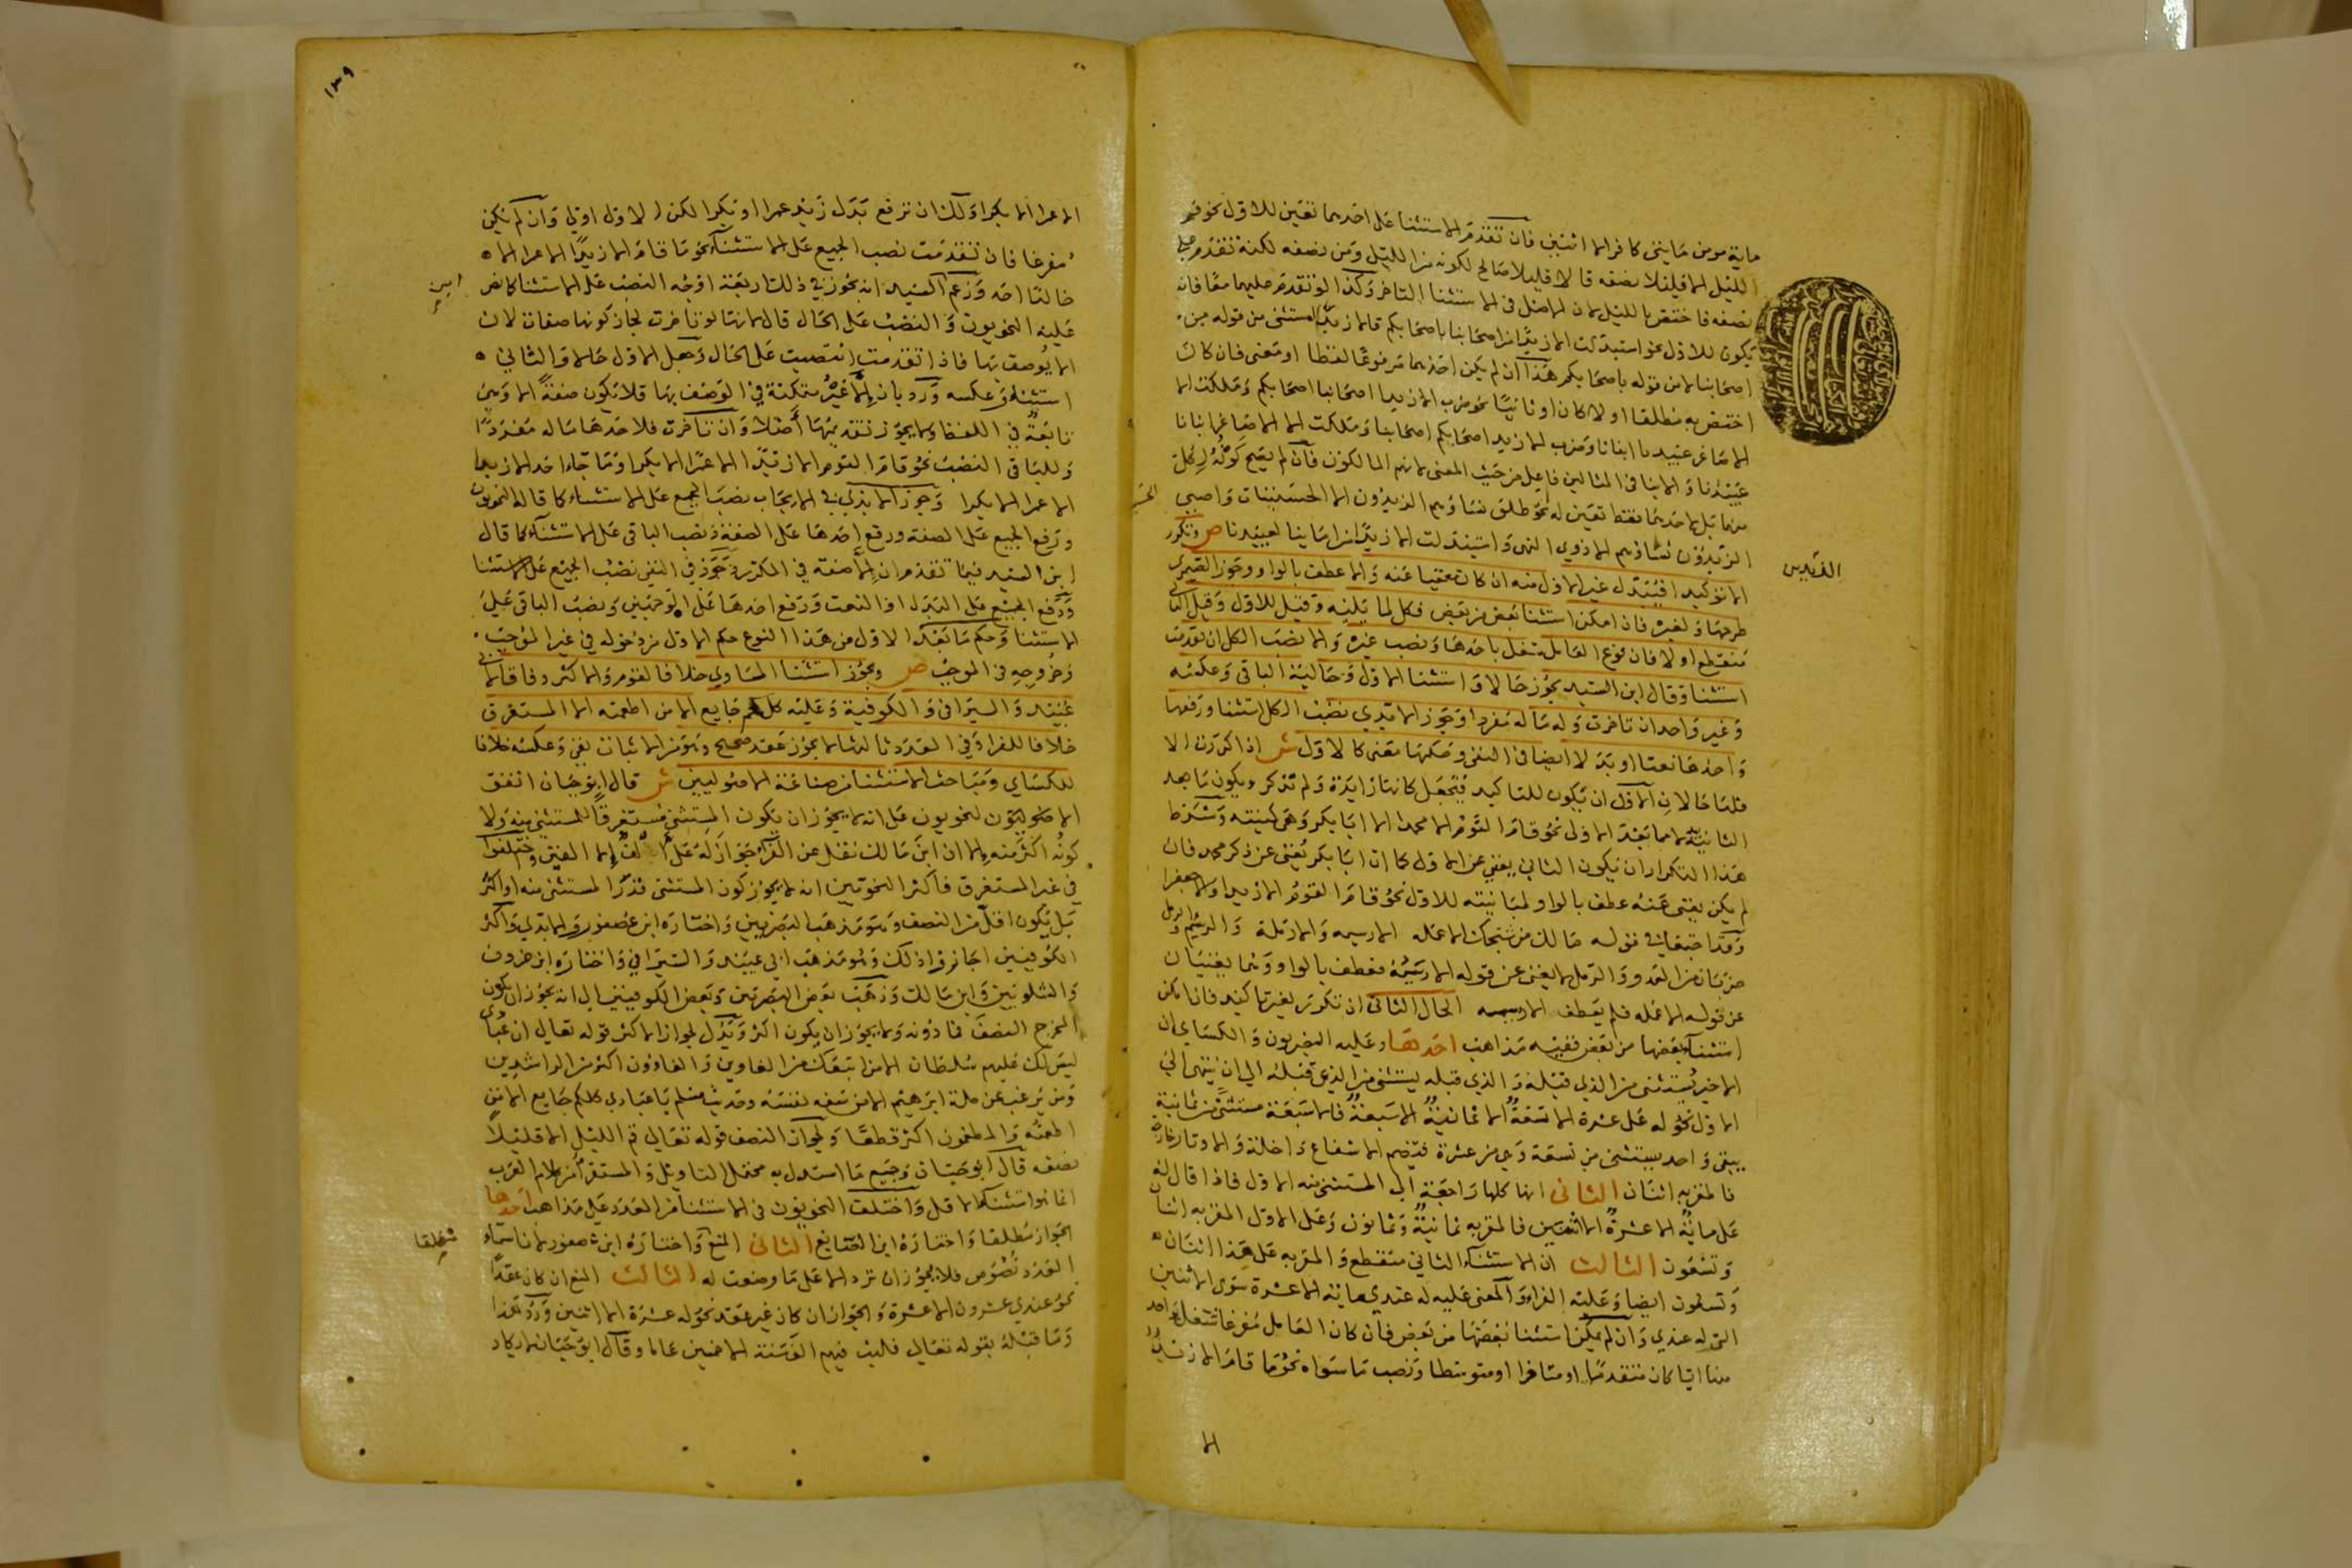 ماية مومن مايتى كافر الا اثنين فان تقدم الاستثنا على احدهما تعين للاول نحو قم
الليل الا قليلا نصفه قالا قليلا صالح لكونه من الليل ومن نصفه لكنه تقدم على
نصفه فاختص بالليل لان الاصل فى الاستثنا التاخر وكذا لو تقدم عليهما معا فانه
يكون للاول نحو استبدلت الا زيدا من اصحابنا باصحابكم فالا زيدا مستثنى من قوله من
اصحابنا لا من قوله باصحابكم هذا ان لم يكن احدهما مرفوعا لفظا او معنى فان كان
اختص به مطلقا اولا كان او ثانيا نحو ضرب الا زيدا اصحابنا اصحابكم وملكت الا
الاصاغر عبيدنا ابنانا وضرب الا زيدا اصحابكم اصحابنا وملكت الا الاصاغر ابنانا
عبيدنا والابنا فى المثالين فاعل من حيث المعنى لانهم المالكون فان لم يصح كونه لكل
منهما بل لاحدهما فقط تعين له نحو طلق نساؤهم الزيدون الا الحسنيات واصبى
الزيدون نساؤهم الا ذوي النهى واستبدلت الا زيدا من امائنا لعبيدنا ص وتكرر
الا توكيدا فيبدل غير الاول منه ان كان مغنيا عنه والا عطف بالواو وجوز الصيمرى
طرحها ولغيره فان امكن استثنا بعض من بعض فكل لما يليه وقيل للاول وقيل الثانى
منقطع اولا فان فرغ العامل شغل باحدها ونصب غيره والا نصب الكل ان تقدمت
استثنا وقال ابن السيد يجوز حالا واستثنا الاول وحالية الباقى وعكسه
وغير واحد ان تاخرت وله ما له مفردا وجوز الابدي نصب الكل استثنا ورفعها
واحدها نعتا او بدلا ايضا فى النفى وحكمها معنى كالاول ش اذا كررت الا
فلها حالان الاول ان يكون للتاكيد فتجعل كانها زايدة ولم تذكر ويكون ما بعد
الثانية بدلا مما بعد الاولى نحو قام القوم الا محمدا الا ابا بكر وهى كنيته وشرط
هذا التكرار ان يكون الثانى يغنى عن الاول كما ان ابا بكر يغنى عن ذكر محمد فان
لم يكن يغنى عنه عطف بالواو لمباينته للاول نحو قام القوم الا زيدا والا جعفرا
وقد اجتمعا فى قوله مالك من شيخك الا عمله الا رسيمه والا رمله والرسيم والرمل
ضربان من العدو والرمل لا يغنى عن قوله الا رسيمه فعطف بالواو وهما يغنيان
عن قوله الا عمله فلم يعطف الا رسيمه الحال الثانى ان تكرر لغير تاكيد فان امكن
استثنا بعضها من بعض ففيه مذاهب احدها وعليه البصريون والكسائى ان
الاخير يستثنى من الذي قبله والذي قبله يستثنى من الذي قبله الى ان ينتهى الى
الاول نحو له على عشرة الا تسعة الا ثمانية الا سبعة فالا سبعة مستثنى من ثمانية
يبقى واحد يستثنى من تسعة وهى من عشرة فتضم الاشفاع داخلة والاوتار خارجة
فالمقر به اثنان الثانى انها كلها راجعة الى المستثنى منه الاول فاذا قال له
على ماية الا عشرة الا اثنين فالمقر به ثمانية وثمانون وعلى الاول المقر به اثنان
وتسعون الثالث ان الاستثنا الثانى منقطع والمقر به على هذا اثنان
وتسعون ايضا وعليه الفراء والمعنى عليه له عندي ماية الا عشرة سوى الاثنين
التى له عندي وان لم يمكن استثنا بعضها من بعض فان كان العامل مفرغا شغل بواحد
منها ايا كان متقدما او متاخرا او متوسطا ونصب ما سواه نحو ما قام الا زيد
الا
القديس
١٣٩
الا عمرا الا بكرا ولك ان ترفع بدل زيد عمرا او بكرا لكن الاول اولى وان لم يكن
مفرغا فان تقدمت نصب الجميع على الاستثنا نحو ما قام الا زيدا الا عمرا الا
خالدا احد وزعم السيد انه يجوز فى ذلك اربعة اوجه النصب على الاستثنا كما نص
عليه النحويون والنصب على الحال قال لانها لو تاخرت لجاز كونها صفات لان
الا يوصف بها فاذا تقدمت انتصبت على الحال وجعل الاول حالا والثانى
استثنا وعكسه ورد بان الا غير متمكنة فى الوصف بها فلا يكون صفة الا وهى
تابعة فى اللفظ ولا يجوز تقديمها اصلا وان تاخرت فلاحدها ما له مفردا
وللباقى النصب نحو قام القوم الا زيدا الا عمرا الا بكرا وما جاء احد الا زيدا
الا عمرا الا بكرا وجوز الابذي فى الايجاب نصب الجميع على الاستثناء كما قاله النحويون
ورفع الجميع على الصفة ورفع احدها على الصفة ونصب الباقى على الاستثنا كما قال
ابن السيد فيما تقدم ان الا صفة فى المكرر وجوز فى النفى نصب الجميع على الاستثنا
ورفع الجميع على البدل او النعت ورفع احدها على الوجهين ونصب الباقى على
الاستثنا وحكم ما بعد الاول من هذا النوع حكم الاول من دخوله فى غير الموجب
وخروجه فى الموجب ص ويجوز استثنا المساوي خلافا لقوم والاكثر وفاقا لابى
عبيد والسيرافى والكوفية وعليه كلكم جايع الا من اطعمته الا المستغرق
خلافا للفراء وفى العدد ثالثها لا يجوز عقد صحيح وهو من الاثبات نفى وعكسه خلافا
للكساي ومباحث الاستثنا من صناعة الاصوليين ش قال ابو حيان اتفق
الاصوليون النحويون على انه لا يجوز ان يكون المستثنى مستغرقا للمستثنى منه ولا
كونه اكثر منه الا ان ابن مالك نقل عن الفراء جواز له على الف الا الفين واختلفوا
فى غير المستغرق فاكثر النحويين انه لا يجوز كون المستثنى قدر المستثنى منه او اكثر
بل يكون اقل من النصف وهو مذهب البصريين واختاره ابن عصفور والابدي واكثر
الكوفيين اجازوا ذلك وهو مذهب ابى عبيد والسيرافى واختاره ابن خروف
والشلوبين وابن مالك وذهب بعض البصريين وبعض الكوفيين الى انه يجوز ان يكون
المخرج النصف فما دونه ولا يجوز ان يكون اكثر ويدل لجواز الاكثر قوله تعالى ان عبادى
ليس لك عليهم سلطان الا من اتبعك من الغاوين والغاوون اكثر من الراشدين
ومن يرغب عن ملة ابرهيم الا من سفه نفسه وحديث مسلم يا عبادي كلكم جايع الا من
اطعمته والمطعمون اكثر قطعا ولجواز النصف قوله تعالى قم الليل الا قليلا
نصفه قال ابو حيان وجميع ما استدل به محتمل التاويل والمستقرا من كلام العرب
انما هو استثنا الاقل واختلف النحويون فى الاستثنا من العدد على مذاهب احدها
الجواز مطلقا واختاره ابن الصايغ الثانى المنع واختاره ابن عصفور لان اسماء
العدد نصوص فلا يجوز ان ترد الا على ما وضعت له الثالث المنع ان كان عقدا
نحو عندي عشرون الا عشرة والجواز ان كان غير عقد نحو له عشرة الا اثنين ورد هذا
وما قبله بقوله تعالى فلبث فيهم الف سنة الا خمسين عاما وقال ابو حيان لا يكاد
ابن
مطلقا